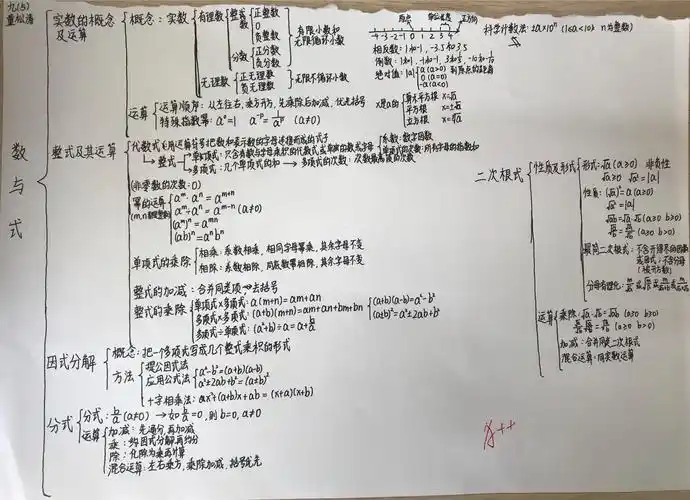 九(5)
董松涛
数与式
实数的概念及运算
概念:实数
有理数
整数
正整数
0
负整数
分数
正分数
负分数
有限小数和
无限循环小数
无理数
正无理数
负无理数
无限不循环小数
原点 单位长度 正方向
-4 -3 -2 -1 0 1 2 3 4
相反数:1和-1, -3.5和3.5
倒数:1和1, -1和-1
绝对值:|a| a(a>0)
0(a=0)
-a(a<0)
到原点的距离
科学计数法:±a×10ⁿ (1≤a<10, n为整数)
运算
运算顺序:从左往右,乘方开方,先乘除后加减,优先括号
特殊指数幂:a⁰=1 a⁻ᵖ=1/aᵖ (a≠0)
x是a的
算术平方根 x=√a
平方根 x=±√a
立方根 x=∛a
整式及其运算
代数式:用运算符号把数和表示数的字母连接而成的式子
→整式
单项式:只含有数与字母乘积的代数式或单独的数或字母
系数:数字因数
单项式的次数:所有字母的指数和
多项式:几个单项式的和→多项式的次数:次数最高项的次数
(非零数的次数:0)
幂的运算
aᵐ·aⁿ=aᵐ⁺ⁿ
aᵐ÷aⁿ=aᵐ⁻ⁿ (a≠0)
(aᵐ)ⁿ=aᵐⁿ
(ab)ⁿ=aⁿbⁿ
单项式的乘除
相乘:系数相乘,相同字母幂乘,其余字母不变
相除:系数相除,同底数幂相除,其余字母不变
整式的加减:合并同类项→去括号
整式的乘除
单项式×多项式:a(m+n)=am+an
多项式×多项式:(a+b)(m+n)=am+an+bm+bn
(a+b)(a-b)=a²-b²
(a±b)²=a²±2ab+b²
因式分解
概念:把一个多项式写成几个整式乘积的形式
方法
提公因式法
应用公式法
a²-b²=(a+b)(a-b)
a²±2ab+b²=(a±b)²
十字相乘法:
分式
分式:b/a (a≠0)→如b/a=0,则b=0, a≠0
运算
加减:先通分,再加减
乘:约因式分解再约分
除:化除为乘再计算
混合运算:左右乘方,乘除加减,括号优先
二次根式
性质及形式
形式:√a (a≥0) 非负性
√a≥0 √a²=|a|
性质:(√a)²=a(a≥0)
√a²=|a|
√ab=√a·√b (a≥0 b≥0)
最简二次根式:不含开得尽的因数
或因式;不含分母
(被开方数)
分母有理化:
运算
乘除:√a·√b=√ab (a≥0 b≥0)
加减:合并同类二次根式
混合运算:同实数运算
A++